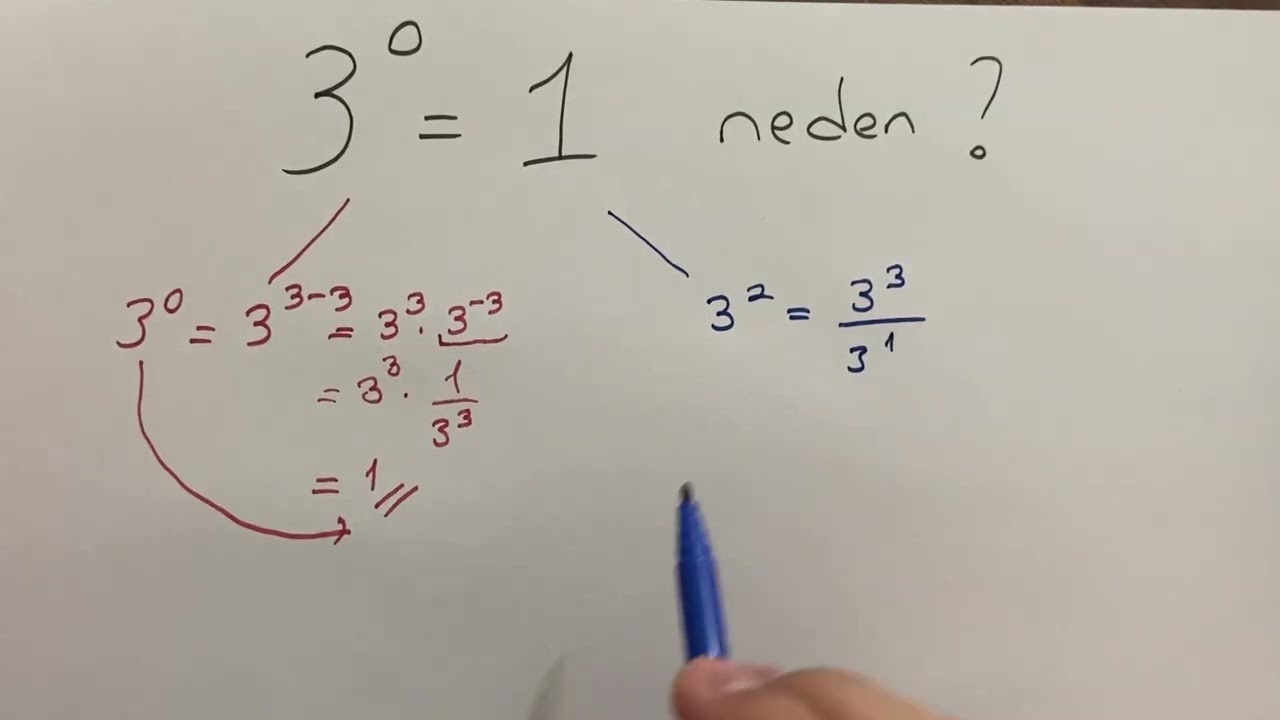 3⁰ = 1 neden ?
3⁰ = 3³⁻³ = 3³ · 3⁻³
= 3³ · 1/3³
= 1
3² = 3³/3¹